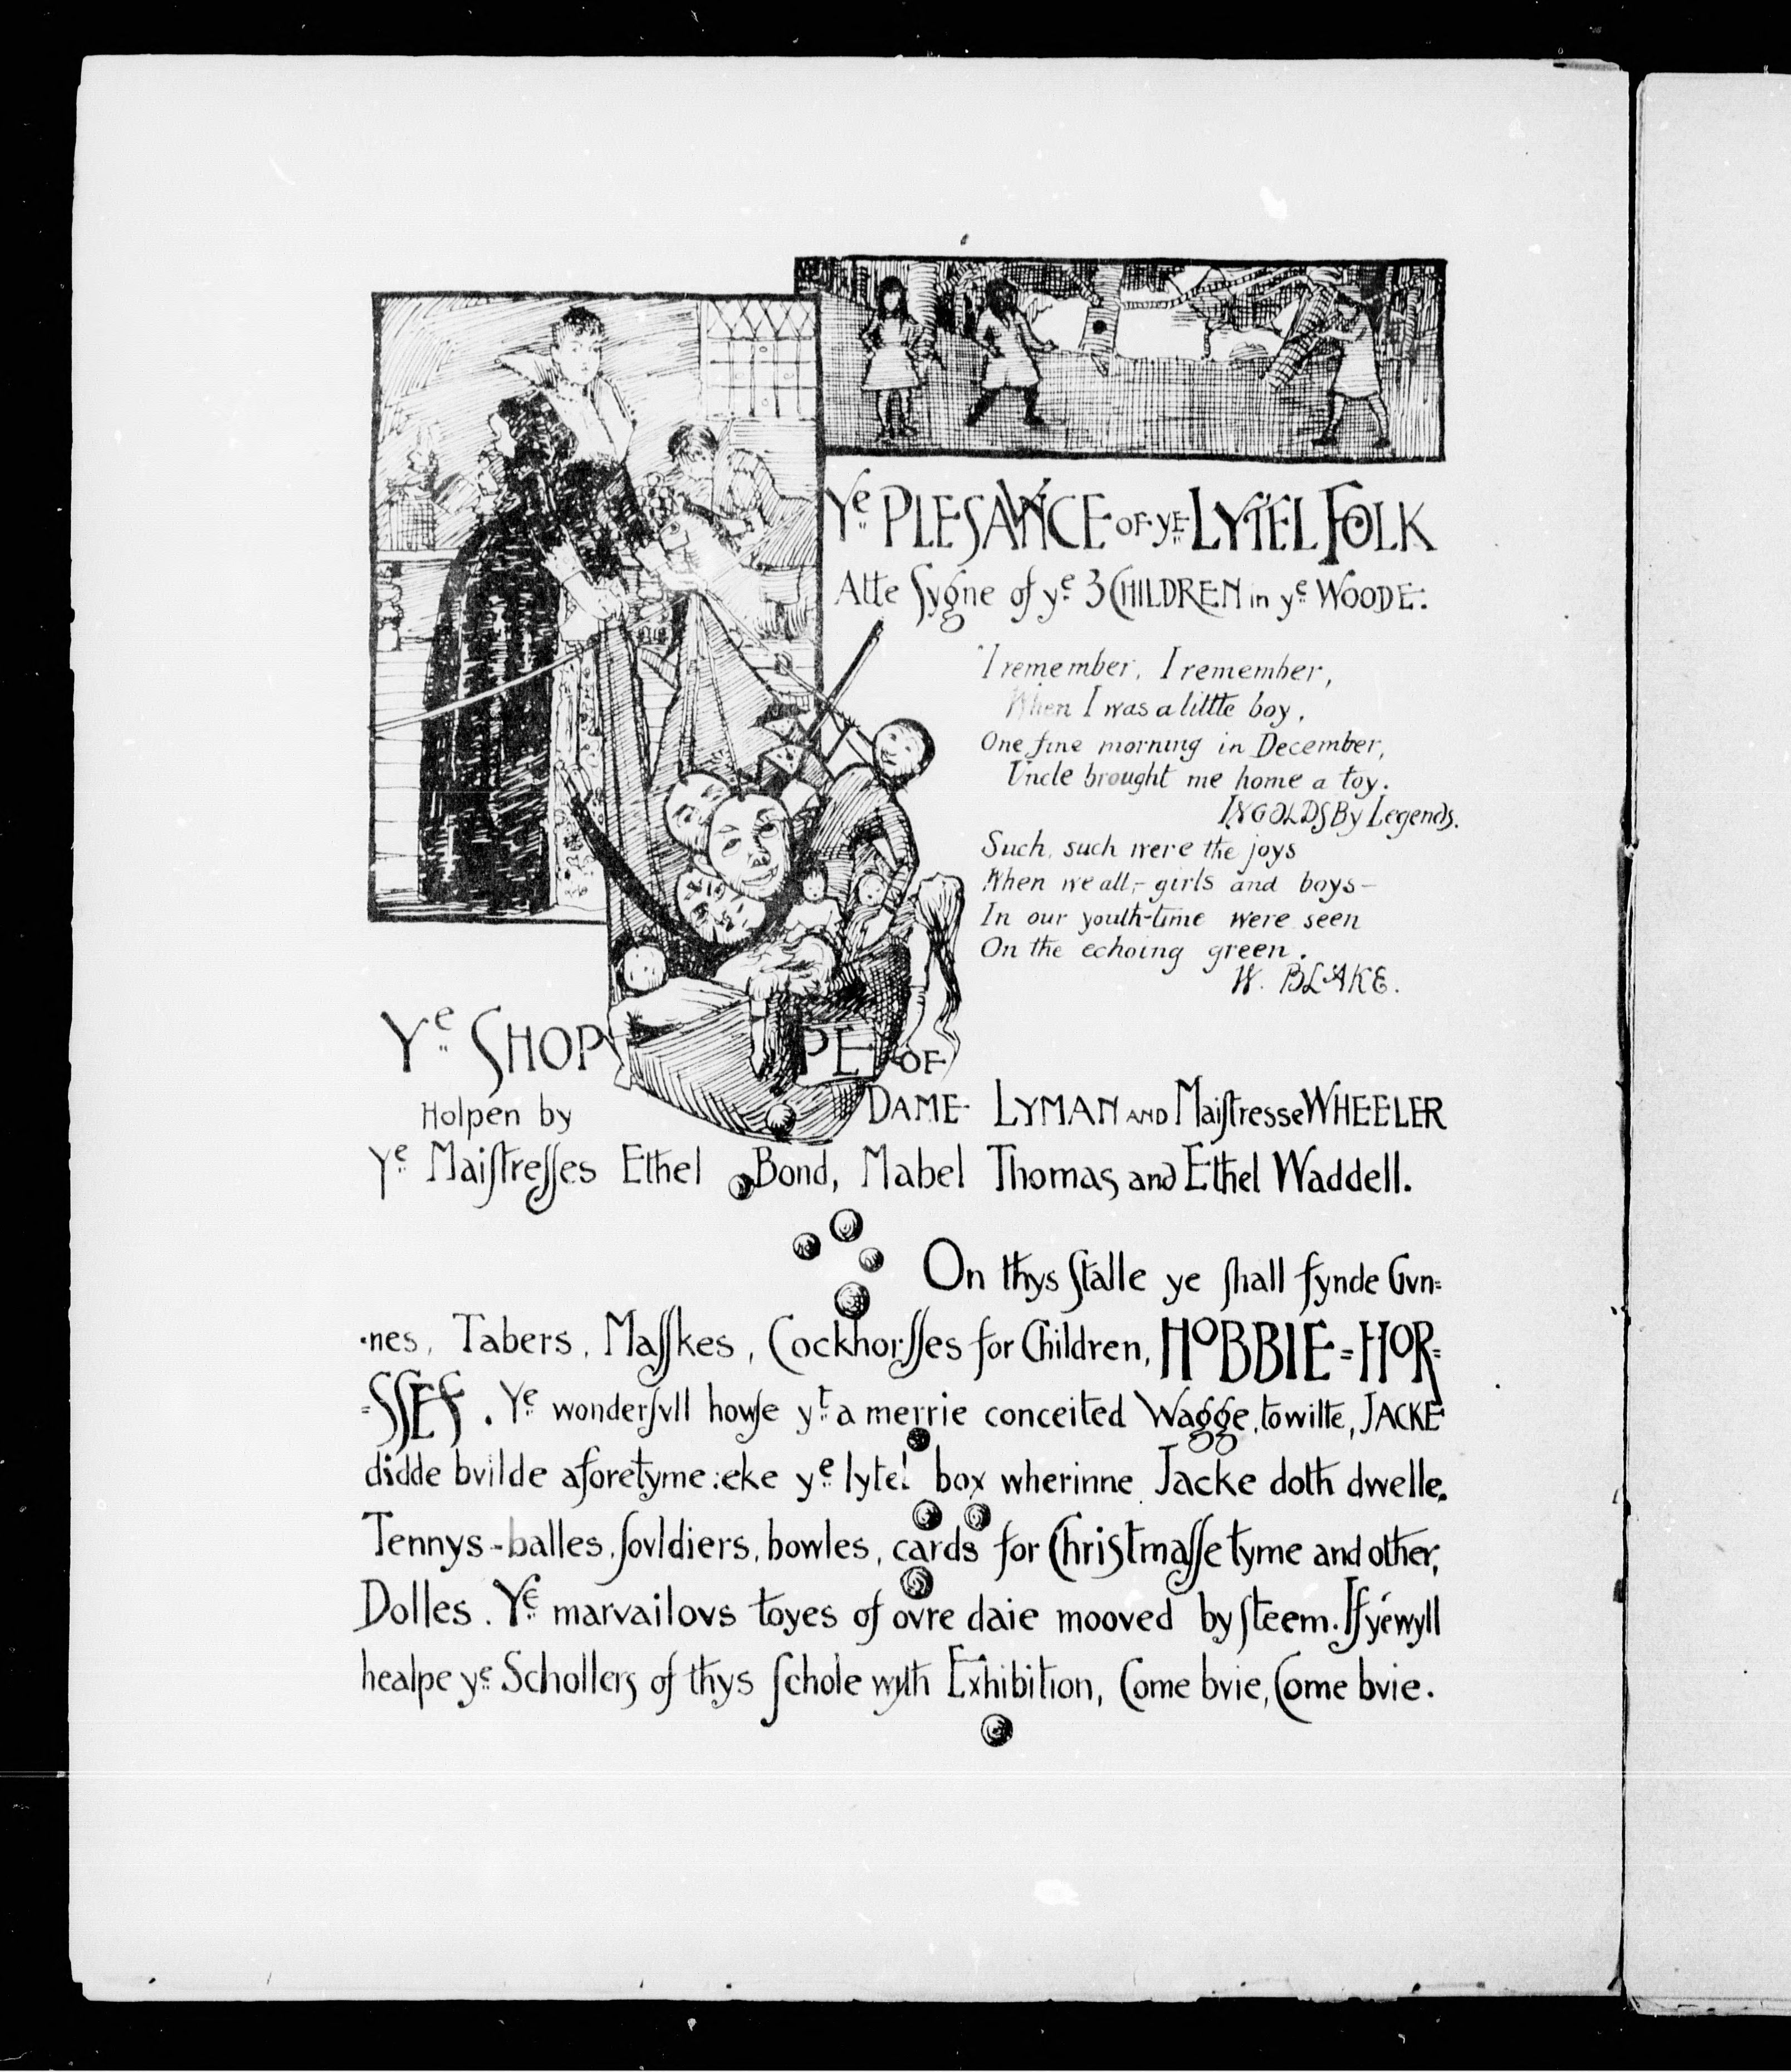 Ye PLESANCE OF YE LYTEL FOLK
Atte Sygne of ye 3 CHILDREN in ye WOODE:
"I remember, I remember,
When I was a little boy,
One fine morning in December,
Uncle brought me home a toy.
INGOLDSBy Legends.
Such, such were the joys
When we all,- girls and boys—
In our youth-time were seen
On the echoing green.
W. BLAKE.
Ye SHOPPE OF
DAME LYMAN AND MaiſtresseWHEELER
Holpen by
Ye Maiſtreſſes Ethel Bond, Mabel Thomas and Ethel Waddell.
On thys ſtalle ye ſhall fynde Gvn=
-nes, Tabers, Maſſkes, Cockhorſſes for Children, HOBBIE=HOR=
=SSES. Ye wonderfvll howſe yt a merrie conceited Wagge, towitte, JACKE
didde bvilde aforetyme: eke ye lytel box wherinne Jacke doth dwelle.
Tennys-balles, ſovldiers, bowles, cards for Christmaſſe tyme and other,
Dolles. Ye marvailovs toyes of ovre daie mooved by ſteem. If ye wyll
healpe ye Schollers of thys ſchole wyth Exhibition, Come bvie, Come bvie.